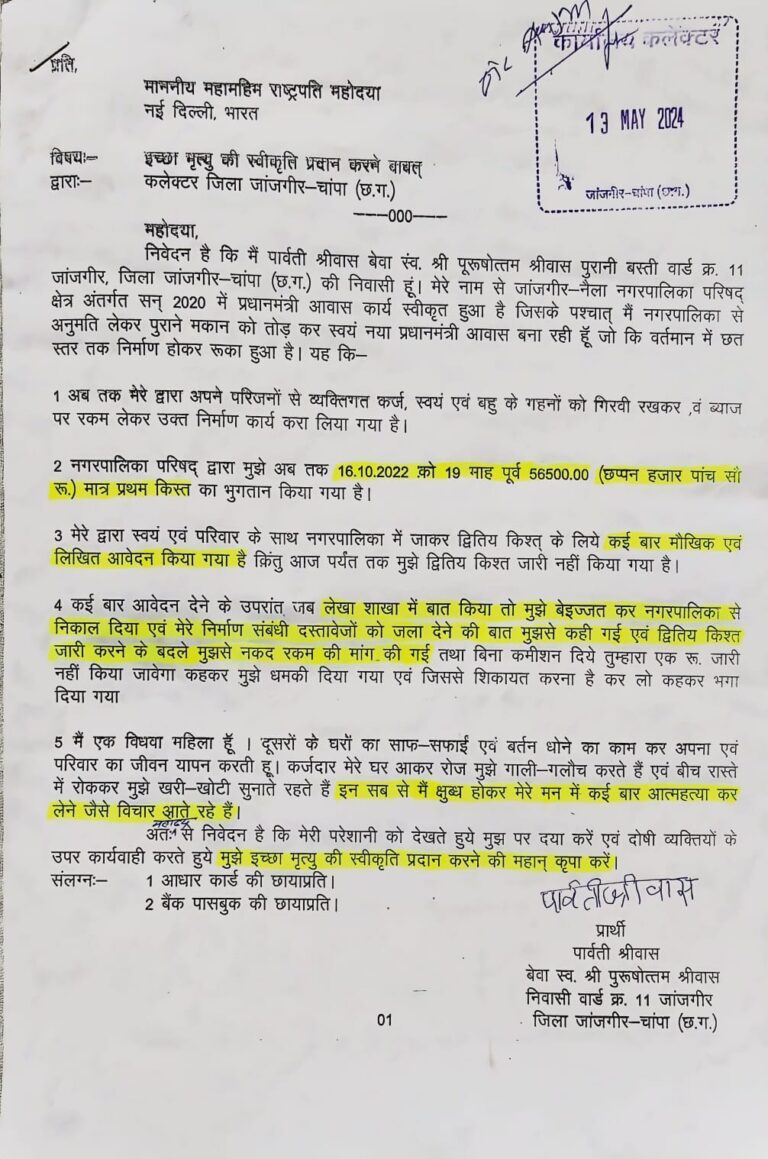 कार्यालय कलेक्टर
13 MAY 2024
जांजगीर–चांपा (छ.ग.)
प्रति,
माननीय महामहिम राष्ट्रपति महोदया
नई दिल्ली, भारत
विषयः– इच्छा मृत्यु की स्वीकृति प्रदान करने बाबत्
द्वाराः– कलेक्टर जिला जांजगीर–चांपा (छ.ग.)
–––000–––
महोदया,
निवेदन है कि मैं पार्वती श्रीवास बेवा स्व. श्री पुरूषोत्तम श्रीवास पुरानी बस्ती वार्ड क्र. 11
जांजगीर, जिला जांजगीर–चांपा (छ.ग.) की निवासी हूं। मेरे नाम से जांजगीर–नैला नगरपालिका परिषद्
क्षेत्र अंतर्गत सन् 2020 में प्रधानमंत्री आवास कार्य स्वीकृत हुआ है जिसके पश्चात् मैं नगरपालिका से
अनुमति लेकर पुराने मकान को तोड़ कर स्वयं नया प्रधानमंत्री आवास बना रही हूॅ जो कि वर्तमान में छत
स्तर तक निर्माण होकर रूका हुआ है। यह कि–
1 अब तक मेरे द्वारा अपने परिजनों से व्यक्तिगत कर्ज, स्वयं एवं बहु के गहनों को गिरवी रखकर ,वं ब्याज
पर रकम लेकर उक्त निर्माण कार्य करा लिया गया है।
2 नगरपालिका परिषद् द्वारा मुझे अब तक 16.10.2022 को 19 माह पूर्व 56500.00 (छप्पन हजार पांच सौ
रू.) मात्र प्रथम किस्त का भुगतान किया गया है।
3 मेरे द्वारा स्वयं एवं परिवार के साथ नगरपालिका में जाकर द्वितिय किश्त् के लिये कई बार मौखिक एवं
लिखित आवेदन किया गया है किंतु आज पर्यंत तक मुझे द्वितिय किश्त जारी नहीं किया गया है।
4 कई बार आवेदन देने के उपरांत जब लेखा शाखा में बात किया तो मुझे बेइज्जत कर नगरपालिका से
निकाल दिया एवं मेरे निर्माण संबंधी दस्तावेजों को जला देने की बात मुझसे कही गई एवं द्वितिय किश्त
जारी करने के बदले मुझसे नकद रकम की मांग की गई तथा बिना कमीशन दिये तुम्हारा एक रू. जारी
नहीं किया जावेगा कहकर मुझे धमकी दिया गया एवं जिससे शिकायत करना है कर लो कहकर भगा
दिया गया
5 मैं एक विधवा महिला हूॅ । दूसरों के घरों का साफ–सफाई एवं बर्तन धोने का काम कर अपना एवं
परिवार का जीवन यापन करती हू। कर्जदार मेरे घर आकर रोज मुझे गाली–गलौच करते हैं एवं बीच रास्ते
में रोककर मुझे खरी–खोटी सुनाते रहते हैं इन सब से मैं क्षुब्ध होकर मेरे मन में कई बार आत्महत्या कर
लेने जैसे विचार आते रहे हैं।
महोदय
अतः से निवेदन है कि मेरी परेशानी को देखते हुये मुझ पर दया करें एवं दोषी व्यक्तियों के
उपर कार्यवाही करते हुये मुझे इच्छा मृत्यु की स्वीकृति प्रदान करने की महान् कृपा करें।
संलग्नः– 1 आधार कार्ड की छायाप्रति।
2 बैंक पासबुक की छायाप्रति।
पार्वती श्रीवास
प्रार्थी
पार्वती श्रीवास
बेवा स्व. श्री पुरूषोत्तम श्रीवास
निवासी वार्ड क्र. 11 जांजगीर
जिला जांजगीर–चांपा (छ.ग.)
01